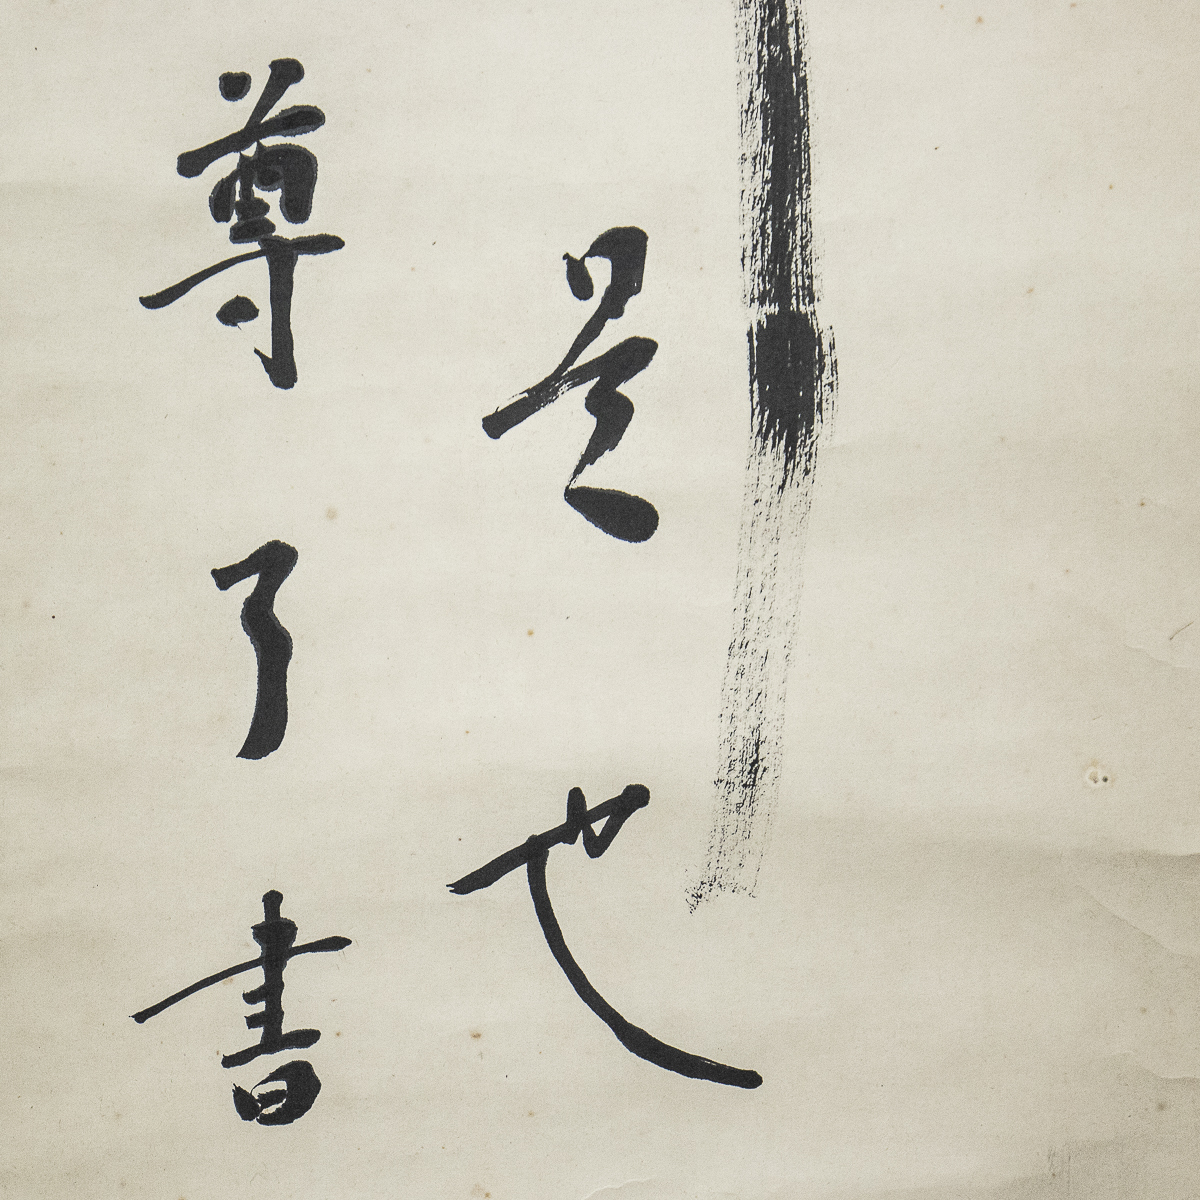 是也
尊了書